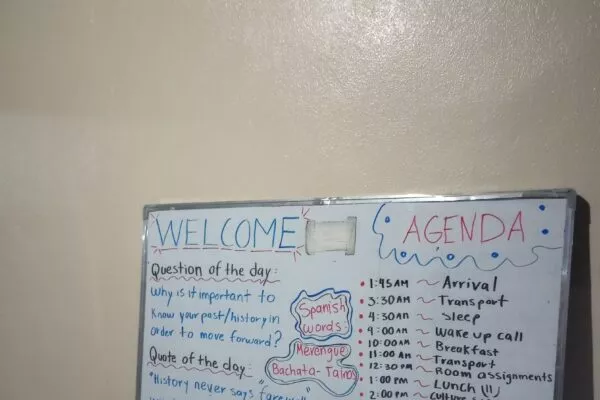 WELCOME
Question of the day:
Why is it important to
know your past/history in
order to move forward?
Quote of the day:
"History never says farewell"
Spanish
words:
Merengue
Bachata-Tainos
AGENDA
1:45AM ~ Arrival
3:30AM ~ Transport
4:30AM ~ Sleep
9:00AM ~ Wake up call
10:00AM ~ Breakfast
11:00AM ~ Transport
12:30PM ~ Room assignments
1:00PM ~ Lunch
2:00PM ~ Culture